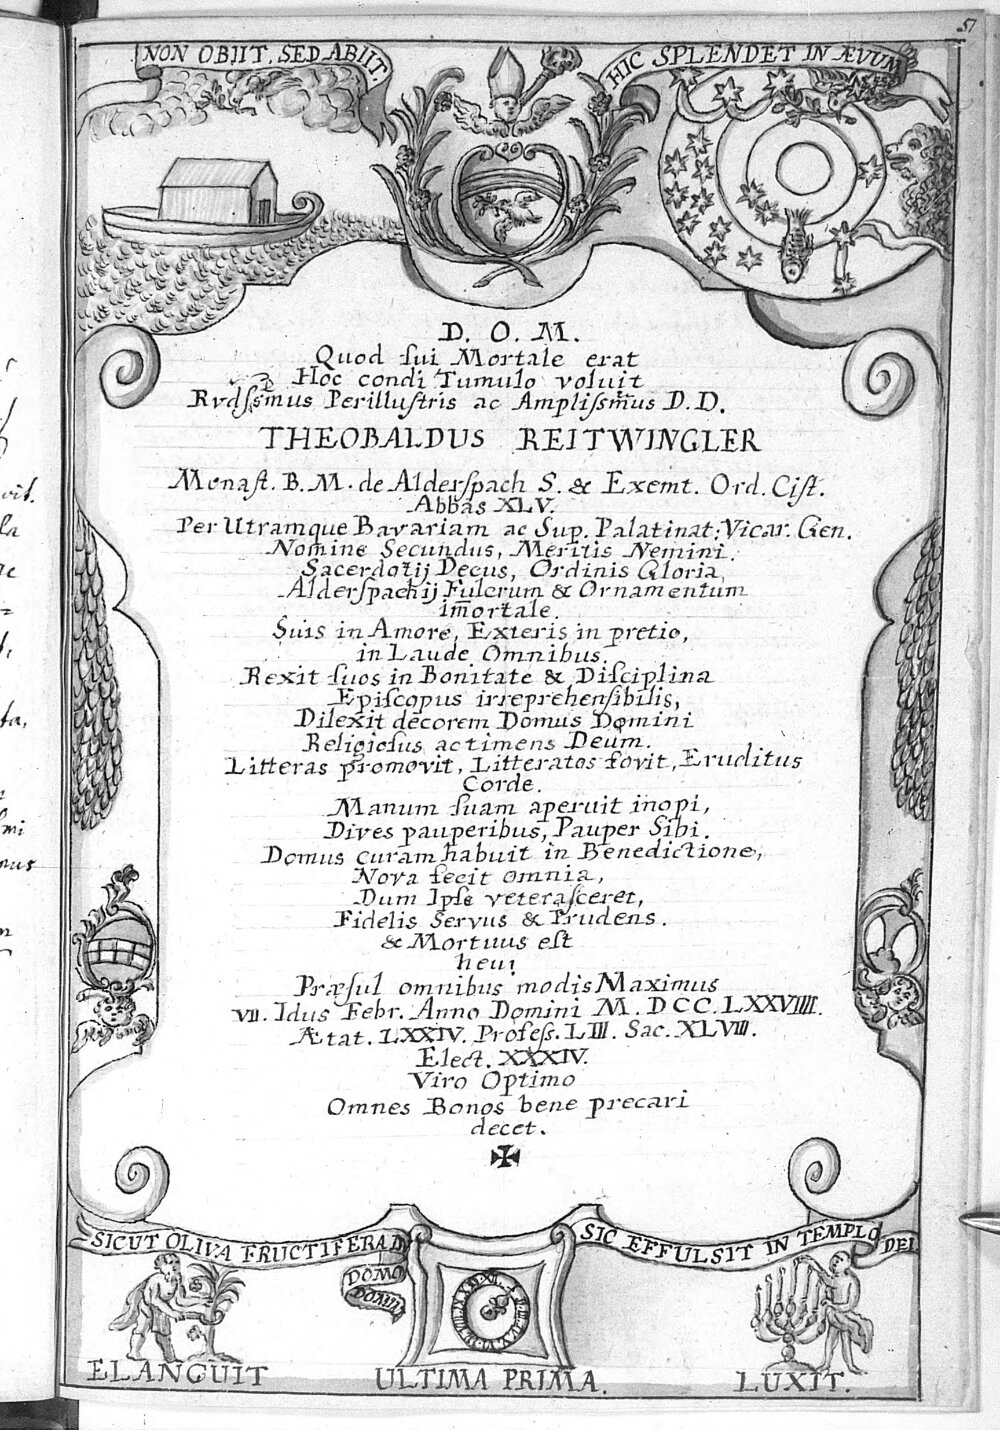 57
NON OBIIT, SED ABIIT.
HIC SPLENDET IN ÆVUM
D. O. M.
Quod sui Mortale erat
Hoc condi Tumulo voluit
Rvdssmus Perillustris ac Amplissm̄us D.D.
THEOBALDUS REITWINGLER
Monast. B. M. de Alderspach S. & Exemt. Ord. Cist.
Abbas XLV.
Per Utramque Bavariam ac Sup. Palatinat: Vicar. Gen.
Nomine Secundus, Meritis Nemini.
Sacerdotij Decus, Ordinis Gloria,
Alderspachij Fulcrum & Ornamentum
im̄ortale.
Suis in Amore, Exteris in pretio,
in Laude Omnibus.
Rexit suos in Bonitate & Disciplina
Episcopus irreprehensibilis,
Dilexit decorem Domus Domini
Religiosus ac timens Deum.
Litteras promovit, Litteratos fovit, Eruditus
Corde.
Manum suam aperuit inopi,
Dives pauperibus, Pauper Sibi.
Domus curam habuit in Benedictione,
Nova fecit omnia,
Dum Ipse veterasceret,
Fidelis Servus & Prudens.
& Mortuus est
heu!
Præsul omnibus modis Maximus
VII. Idus Febr. Anno Domini M. DCC. LXXVIIII.
Ætat. LXXIV. Profess. LIII. Sac. XLVIII.
Elect. XXXIV.
Viro Optimo
Omnes Bonos bene precari
decet.
SICUT OLIVA FRUCTIFERA IN
DOMO
DOMINI
SIC EFFULSIT IN TEMPLO
DEI
ELANGUIT
ULTIMA PRIMA.
LUXIT.